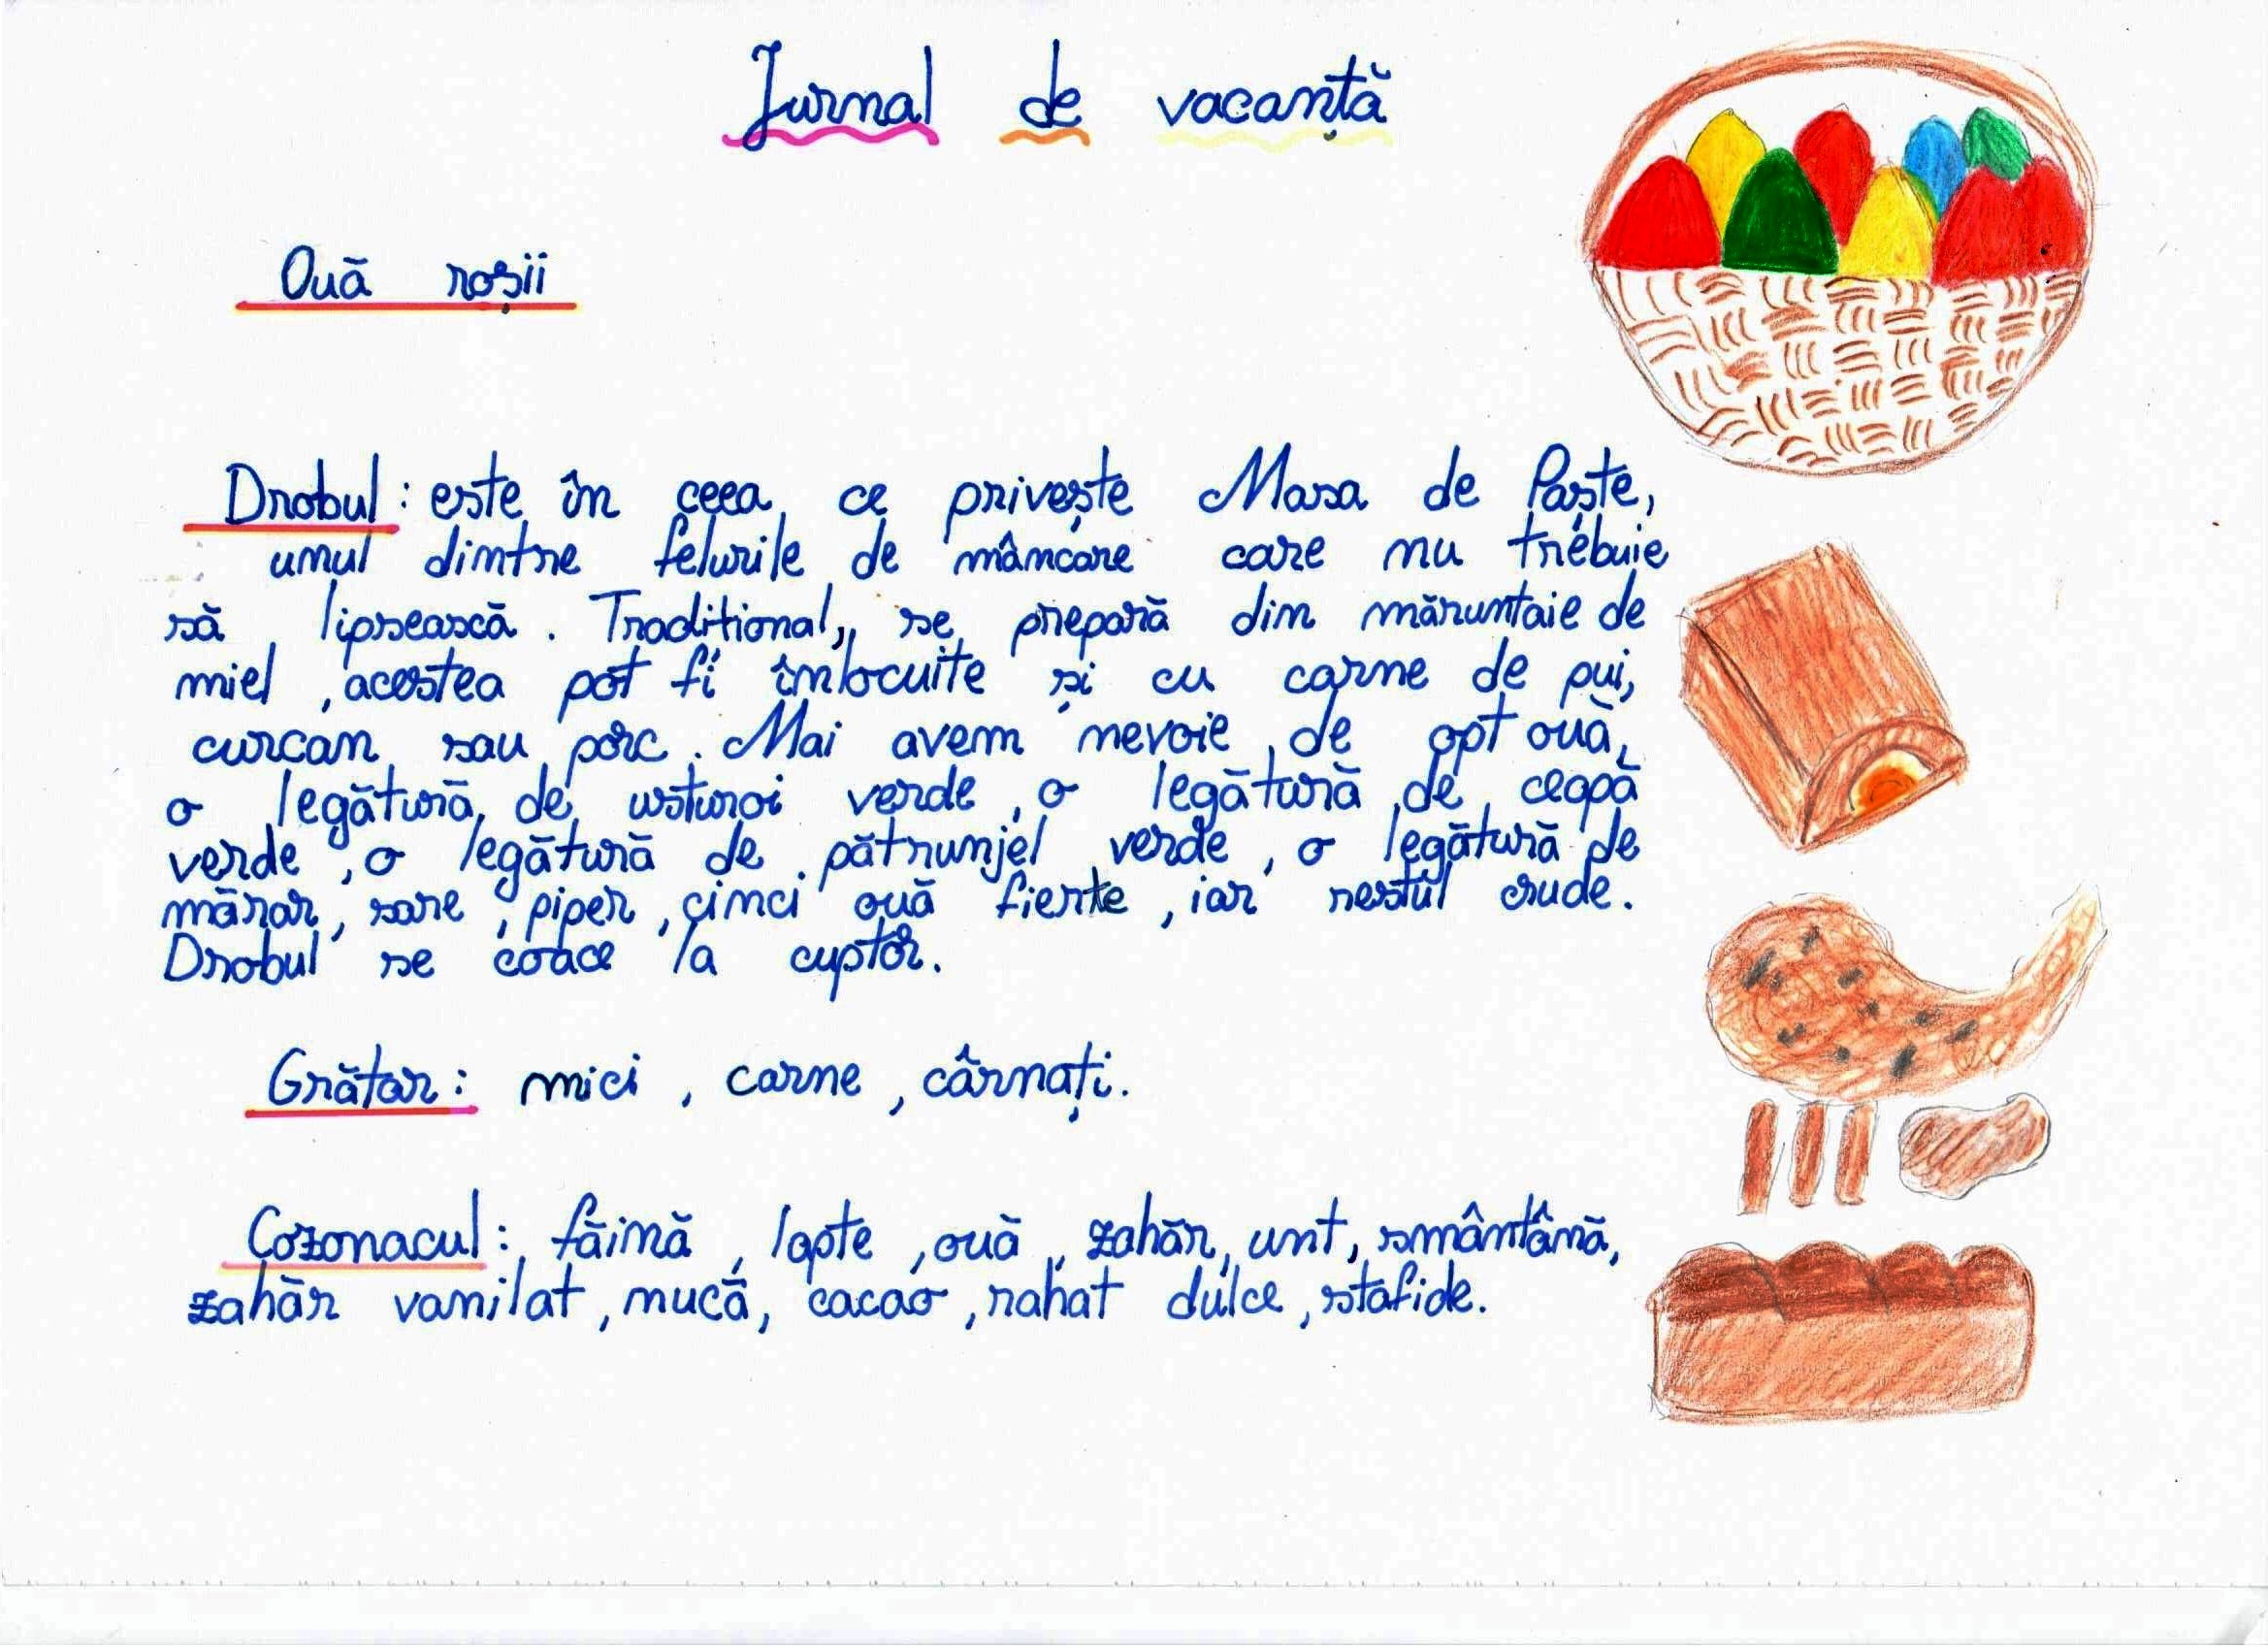 Jurnal de vacanță
Ouă roșii
Drobul: este în ceea ce privește Masa de Paște,
unul dintre felurile de mâncare care nu trebuie
să lipsească. Tradițional, se prepară din măruntaie de
miel, acestea pot fi înlocuite și cu carne de pui,
curcan sau porc. Mai avem nevoie de opt ouă,
o legătură de usturoi verde, o legătură de ceapă
verde, o legătură de pătrunjel verde, o legătură de
mărar, sare, piper, cinci ouă fierte, iar restul crude.
Drobul se coace la cuptor.
Grătar: mici, carne, cârnați.
Cozonacul: făină, lapte, ouă, zahăr, unt, smântână,
zahăr vanilat, nucă, cacao, rahat dulce, stafide.